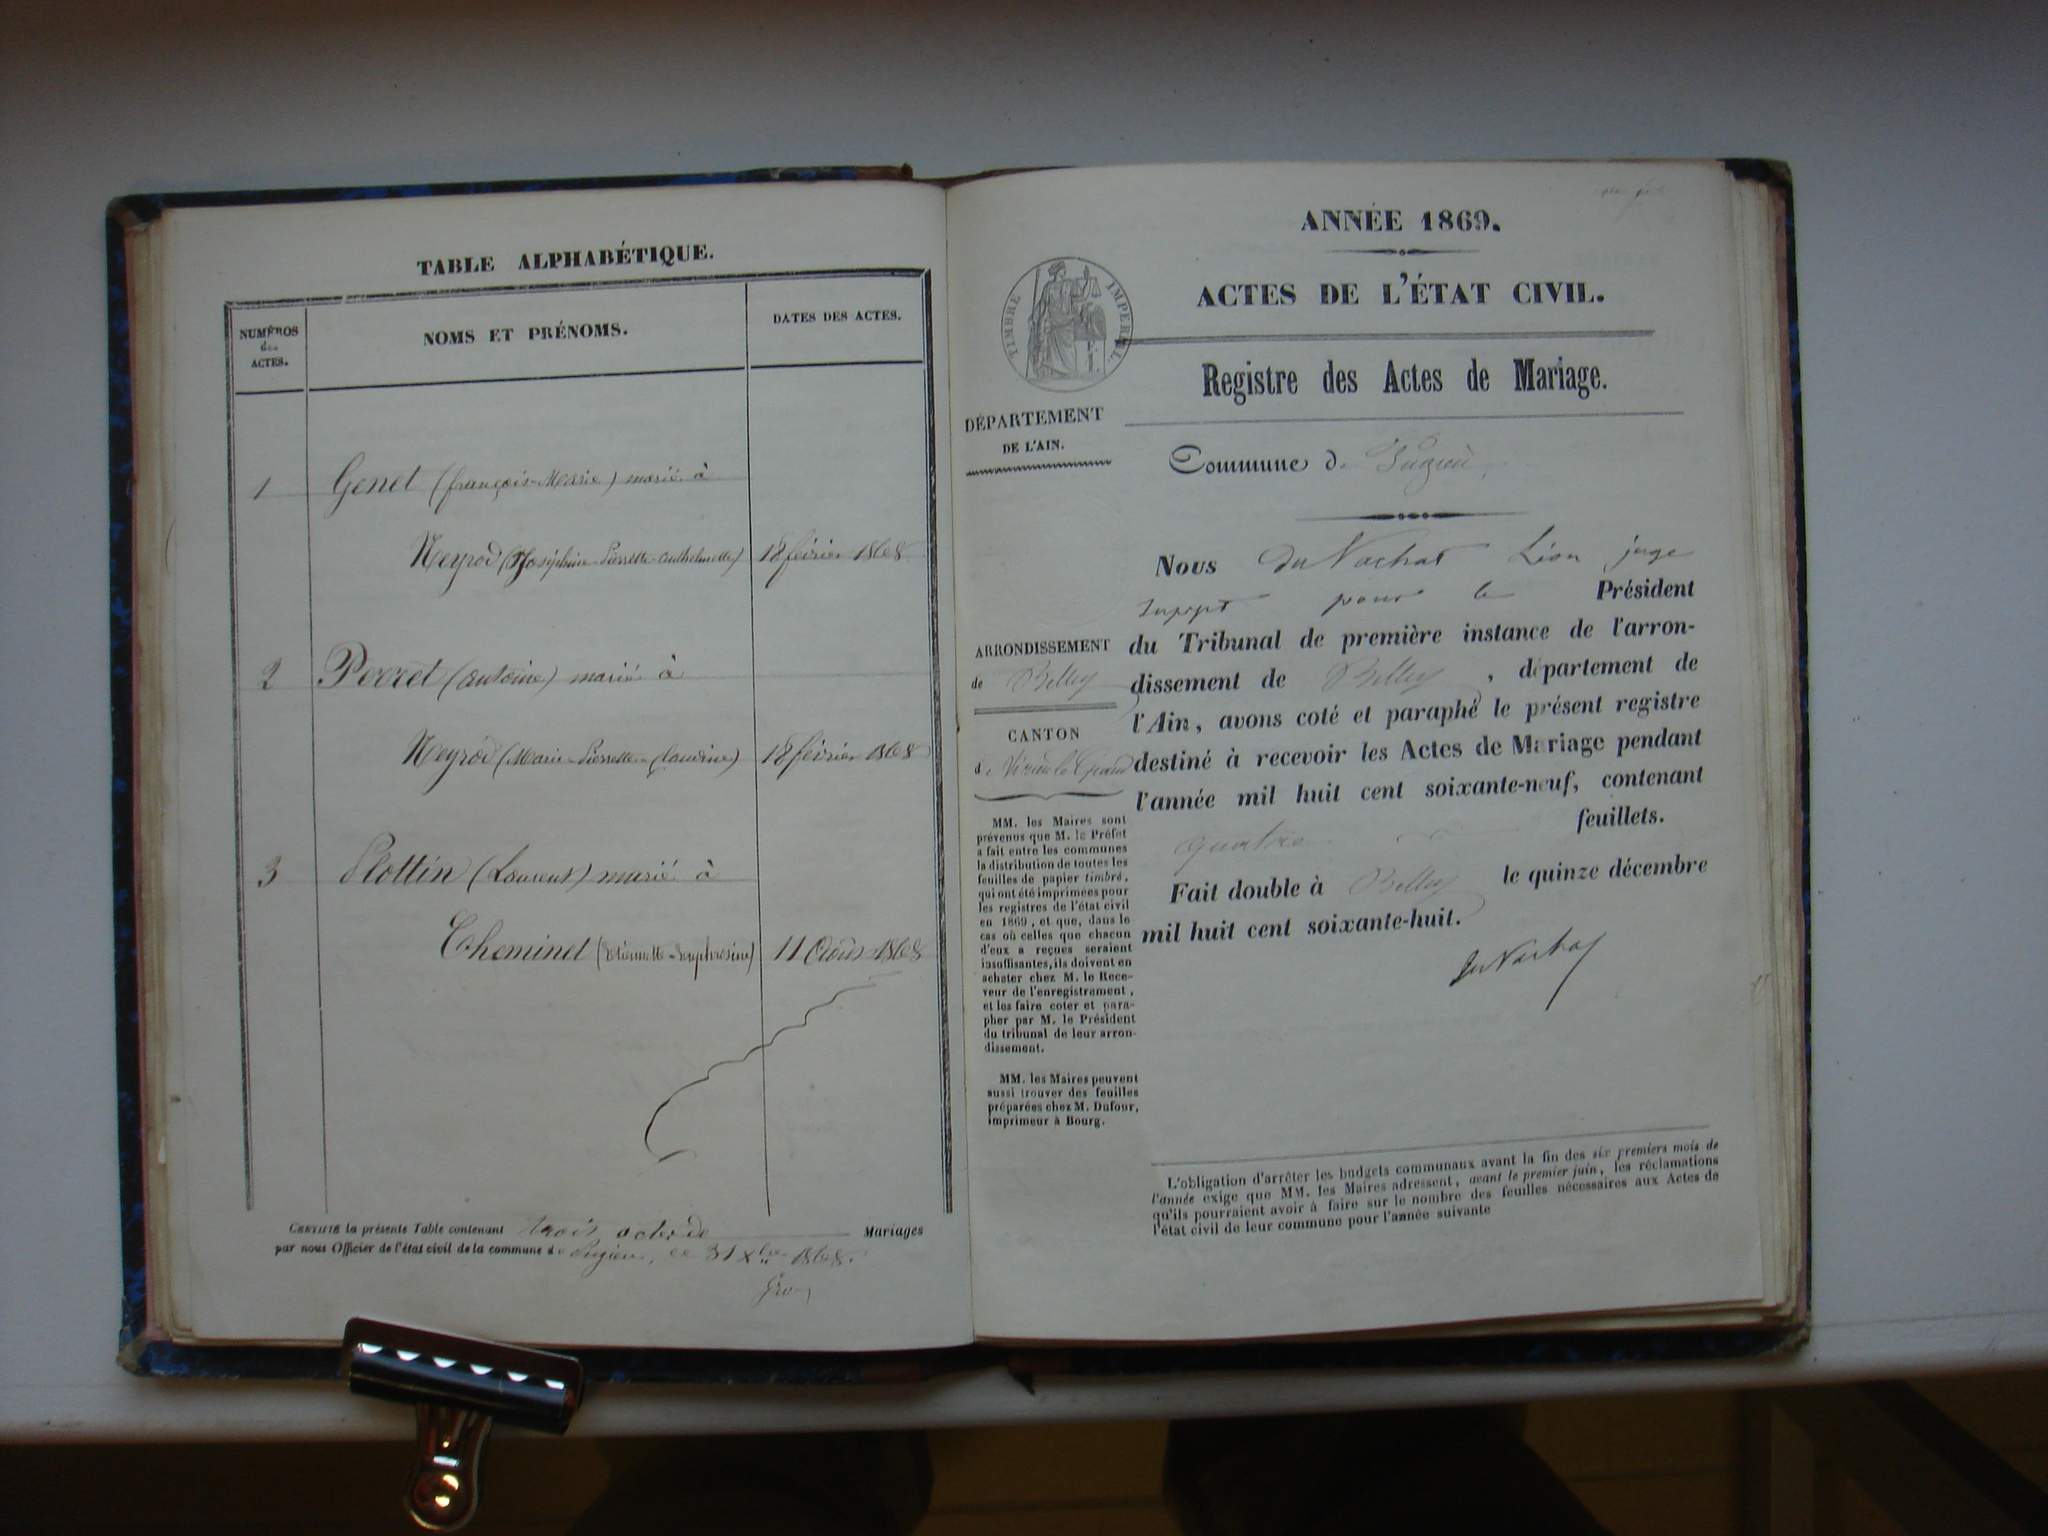 TABLE ALPHABÉTIQUE.
NUMÉROS
des
ACTES.
NOMS ET PRÉNOMS.
DATES DES ACTES.
1 Genet (françois-Marie) marié à
Neyrod (Joséphine-Pierrette-anthelmette) 18 février 1868
2 Perret (antoine) marié à
Neyrod (Marie-Pierrette-Claudine) 18 février 1868
3 Plottin (Laurent) marié à
Theminet (Etiennette-Euphrosine) 11 Août 1868
CERTIFIÉ la présente Table contenant trois actes de Mariages
par nous Officier de l'état civil de la commune de Pugieu, ce 31 Xbre 1868.
ANNÉE 1869.
ACTES DE L'ÉTAT CIVIL.
TIMBRE IMPÉRIAL.
Registre des Actes de Mariage.
DÉPARTEMENT
DE L'AIN.
Commune de Pugieu
Nous du Vachat Léon juge
suppt pour le Président
du Tribunal de première instance de l'arron-
dissement de Belley, département de
l'Ain, avons coté et paraphé le présent registre
destiné à recevoir les Actes de Mariage pendant
l'année mil huit cent soixante-neuf, contenant
quatre feuillets.
Fait double à Belley le quinze décembre
mil huit cent soixante-huit.
du Vachat
ARRONDISSEMENT
de Belley
CANTON
de Virieu le Grand
MM. les Maires sont
prévenus que M. le Préfet
a fait entre les communes
la distribution de toutes les
feuilles de papier timbré,
qui ont été imprimées pour
les registres de l'état civil
en 1869, et que, dans le
cas où celles que chacun
d'eux a reçues seraient
insuffisantes, ils doivent en
acheter chez M. le Rece-
veur de l'enregistrement,
et les faire coter et para-
pher par M. le Président
du tribunal de leur arron-
dissement.
MM. les Maires peuvent
aussi trouver des feuilles
préparées chez M. Dufour,
imprimeur à Bourg.
L'obligation d'arrêter les budgets communaux avant la fin des six premiers mois de
l'année exige que MM. les Maires adressent, avant le premier juin, les réclamations
qu'ils pourraient avoir à faire sur le nombre des feuilles nécessaires aux Actes de
l'état civil de leur commune pour l'année suivante